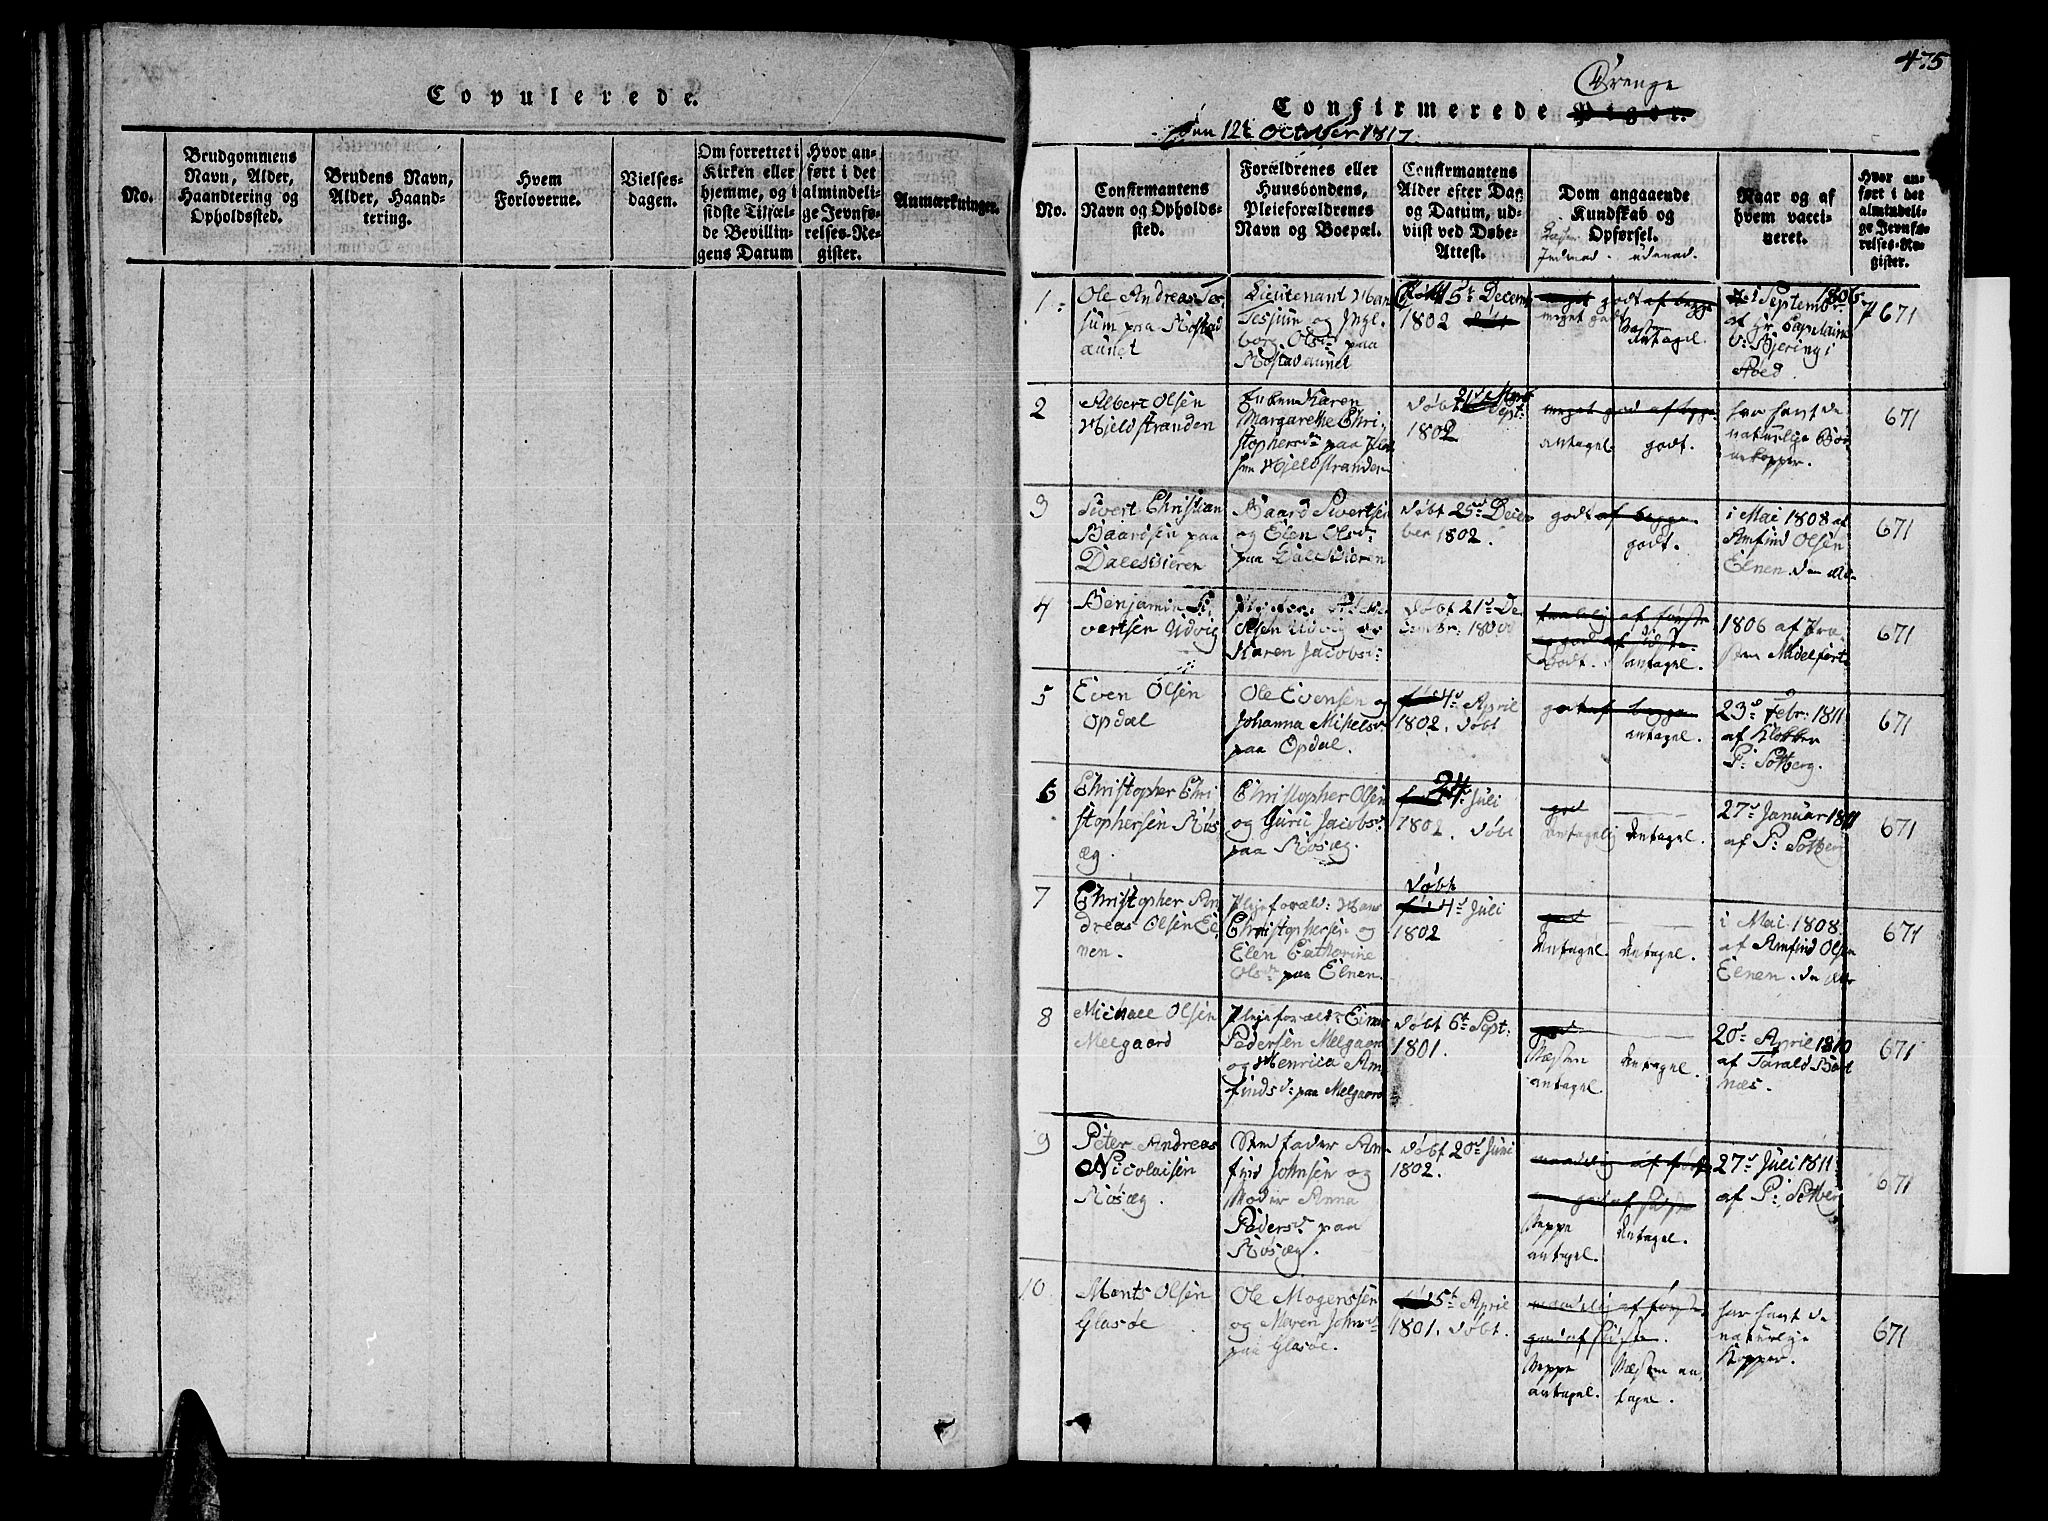 Copulerede.
No.
Brudgommens
Navn, Alder,
Haandtering og
Opholdssted.
Brudens Navn,
Alder, Haand-
tering.
Hvem
Forloverne.
Vielses-
dagen.
Om forrettet i
Kirken eller
hjemme, og i
sidste Tilfæl-
de Bevillin-
gens Datum
Hvor an-
ført i det
almindeli-
ge Jevnfø-
relses-Re-
gister.
Anmærkninger.
475
Drenge
Confirmerede Piger.
den 12t October 1817.
No.
Confirmantens
Navn og Opholds-
sted.
Forældrenes eller
Huusbondens,
Pleieforældrenes
Navn og Boepæl.
Confirmantens
Alder efter Dag
og Datum, ud-
viist ved Døbe-
Attest.
Dom angaaende
Kundskab og
Opførsel.
Indvad. udenad.
Naar og af
hvem vacci-
neret.
Hvor an-
ført i det
almindeli-
ge Jevnfø-
relses-Re-
gister.
1
Ole Andreas Tes
sum paa Rostad
aunet
Lieutenant Han
Tessum og Ingl.
borg Olsd: paa
Rostadaunet
5t Decem
1802
meget godt af begge
meget godt
Næsten
antagel.
i Septembr 1806
af Hr. Captaine
v: Bjering i
Roed
671
2
Albert Olsen
Hjeldstranden
Enken Karen
Margarethe Chri-
stophersd: paa
Hjeldstranden
Døbt 21d
Sept:
1802
meget god af begge
antagel. godt.
har havt de
naturlige Bør
nekopper.
671
3
Sivert Christian
Baardsen paa
Dalessiøren
Baard Sivertsen
og Elen Olsd:
paa Dalessiøren
Døbt 25d Decem
ber 1802.
godt af begge
godt.
i Mai 1808 af
Amfind Olsen
Elnen
671
4
Benjamin Si
vertsen Udvig
Olsen Udvig og
Karen Jacobsd:
Døbt 21d De
cembr: 1800
taalelig af første
god af sidste
Godt. antagel.
1806 af Pro.
sten Madelfort.
671
5
Even Olsen
Opdal
Ole Evensen og
Johanna Mikelsd:
paa Opdal.
4d April
1802. Døbt
godt af begge
antagel.
23d Febr: 1811
af Klokker
P: Solberg.
671
6
Christopher Chri
stophersen Røs
æg.
Christopher Olsen
og Guru Jacobsd:
paa Røsæg.
24t Juli
1802. Døbt
god
Antagelig Antagel.
27d Januar 1811
af P: Solberg
671
7
Christopher An
dreas Olsen El
nen.
Plejeforæld: Hans
Christophersen og
Elen Cathorine
Olsd: paa Elnen.
Døbt
4d Juli
1802
god
Antagel. Antagel.
i Mai 1808.
af Amfind Olsen
Elnen.
671
8
Michael Olsen
Melgaard
Plejeforæld: Einer
Pedersen Melgaard
og Henrica Am
findsd: paa Melgaard
Døbt 6t Sept:
1801.
god
Næsten
antagel. Antagel.
20d April 1810
af Tarald Bart
næs.
671
9
Peter Andreas
Nicolaisen
Røsæg.
Stedfader Am
find Johnsen og
Moder Anna
Pedersd: paa
Røsæg.
Døbt 20d Juni
1802.
maadelig af første
god af sidste
Neppe
antagel. Antagel.
27d Juli 1811
af P: Solberg
671
10
Monts Olsen
Glasøe
Ole Mogenssen
og Maren Johnsd:
paa Glasøe.
5t April
1801. Døbt.
maadelig af første
god af sidste.
Neppe
antagel.
Næsten an
tagel.
har havt de
naturlige
Kopper.
671